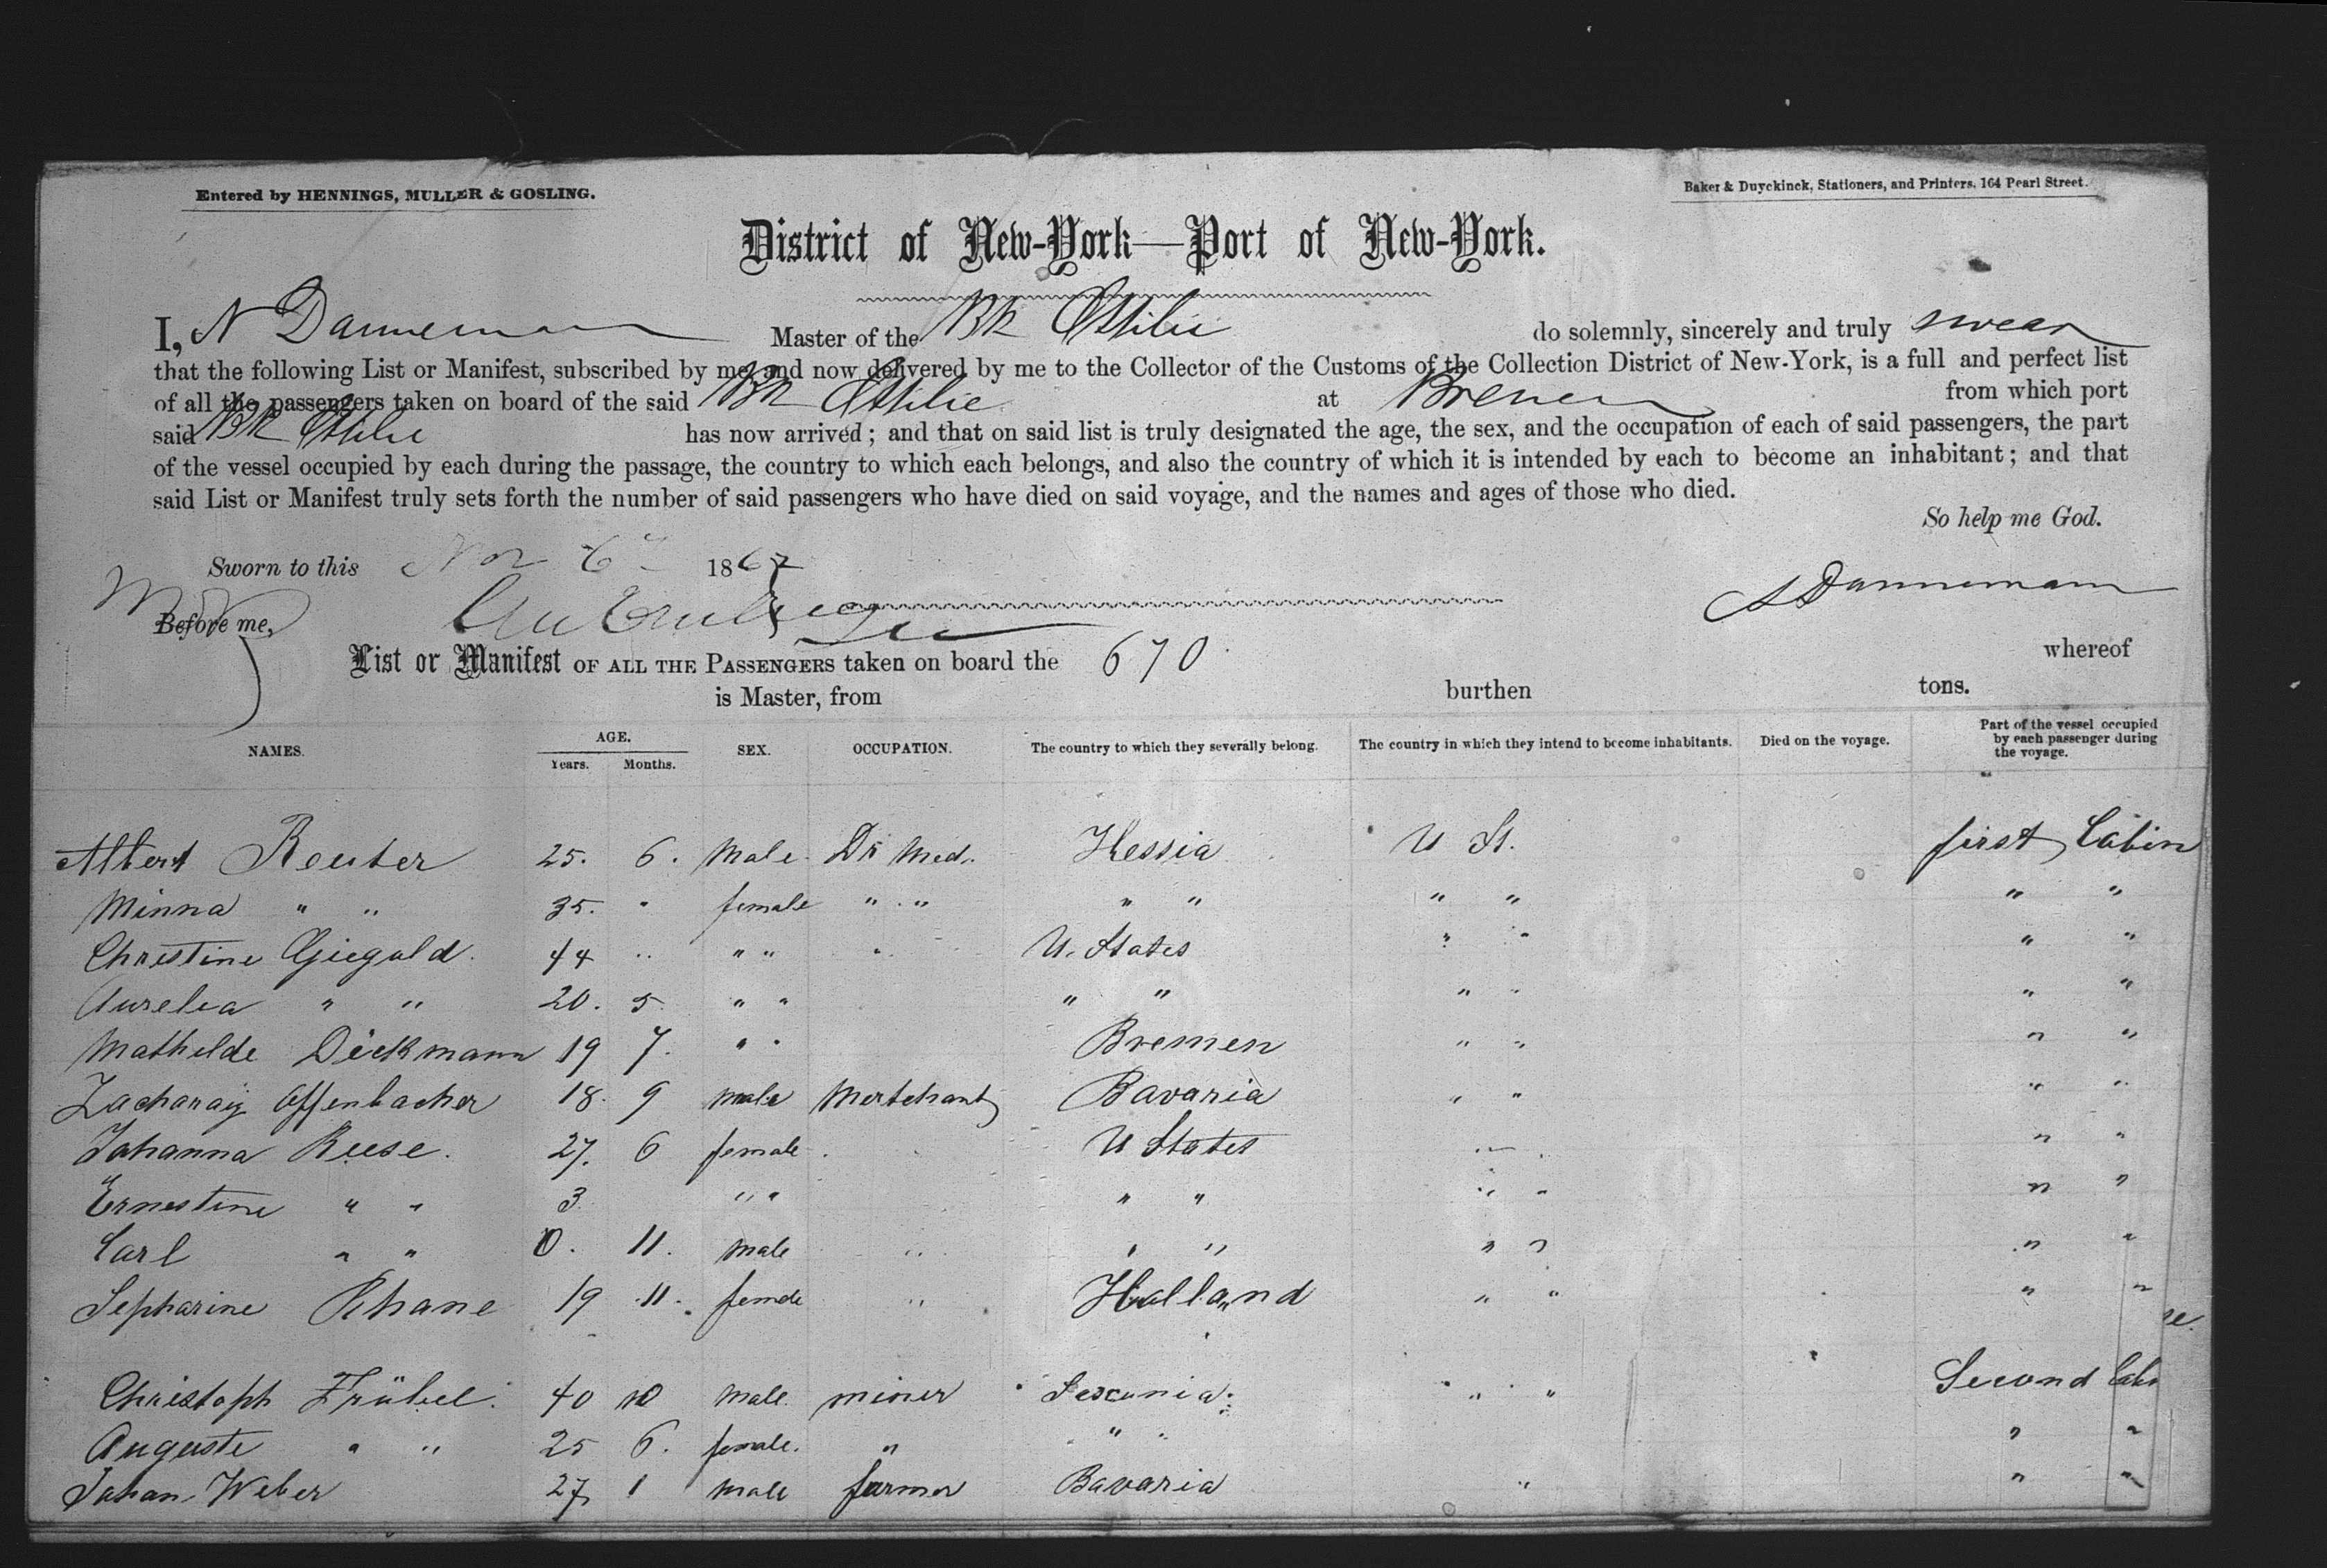 Entered by HENNINGS, MULLER & GOSLING.
Baker & Duyckinck, Stationers, and Printers, 164 Pearl Street.
District of New-York—Port of New-York.
I, N Dannemann Master of the Bk Ottilie do solemnly, sincerely and truly swear
that the following List or Manifest, subscribed by me, and now delivered by me to the Collector of the Customs of the Collection District of New-York, is a full and perfect list
of all the passengers taken on board of the said Bk Ottilie at Bremen from which port
said Bk Ottilie has now arrived; and that on said list is truly designated the age, the sex, and the occupation of each of said passengers, the part
of the vessel occupied by each during the passage, the country to which each belongs, and also the country of which it is intended by each to become an inhabitant; and that
said List or Manifest truly sets forth the number of said passengers who have died on said voyage, and the names and ages of those who died.
So help me God.
Sworn to this Nov 6" 1867
Dannemann
Before me,
List or Manifest OF ALL THE PASSENGERS taken on board the 670 whereof
is Master, from burthen tons.
NAMES. AGE. Years. Months. SEX. OCCUPATION. The country to which they severally belong. The country in which they intend to become inhabitants. Died on the voyage. Part of the vessel occupied by each passenger during the voyage.
Albert Reuter 25. 6. Male. Dr Med. Hessia U St. first Cabin
Minna " " 35. " female " " " " " " " "
Christine Giegold. 44 " " " U. States " " " "
Aurelia " " 20. 5. " " " " " " " "
Mathilde Dieckmann 19 7. " " Bremen " " " "
Zacharaij Offenbacher 18. 9 male Mertchant Bavaria " " " "
Johanna Reese. 27. 6 female U States " " "
Ernestine " " 3. " " " " " " " "
Carl " " 0. 11. male " " " " " "
Sepharine Rhane 19 11. female Holland " " " "
Christoph Frübel. 40 10 Male. miner Saxonia. " " Second Cabin
Auguste " " 25 6. female. " " " " "
Johan Weber 27 1 male farmer Bavaria " " "